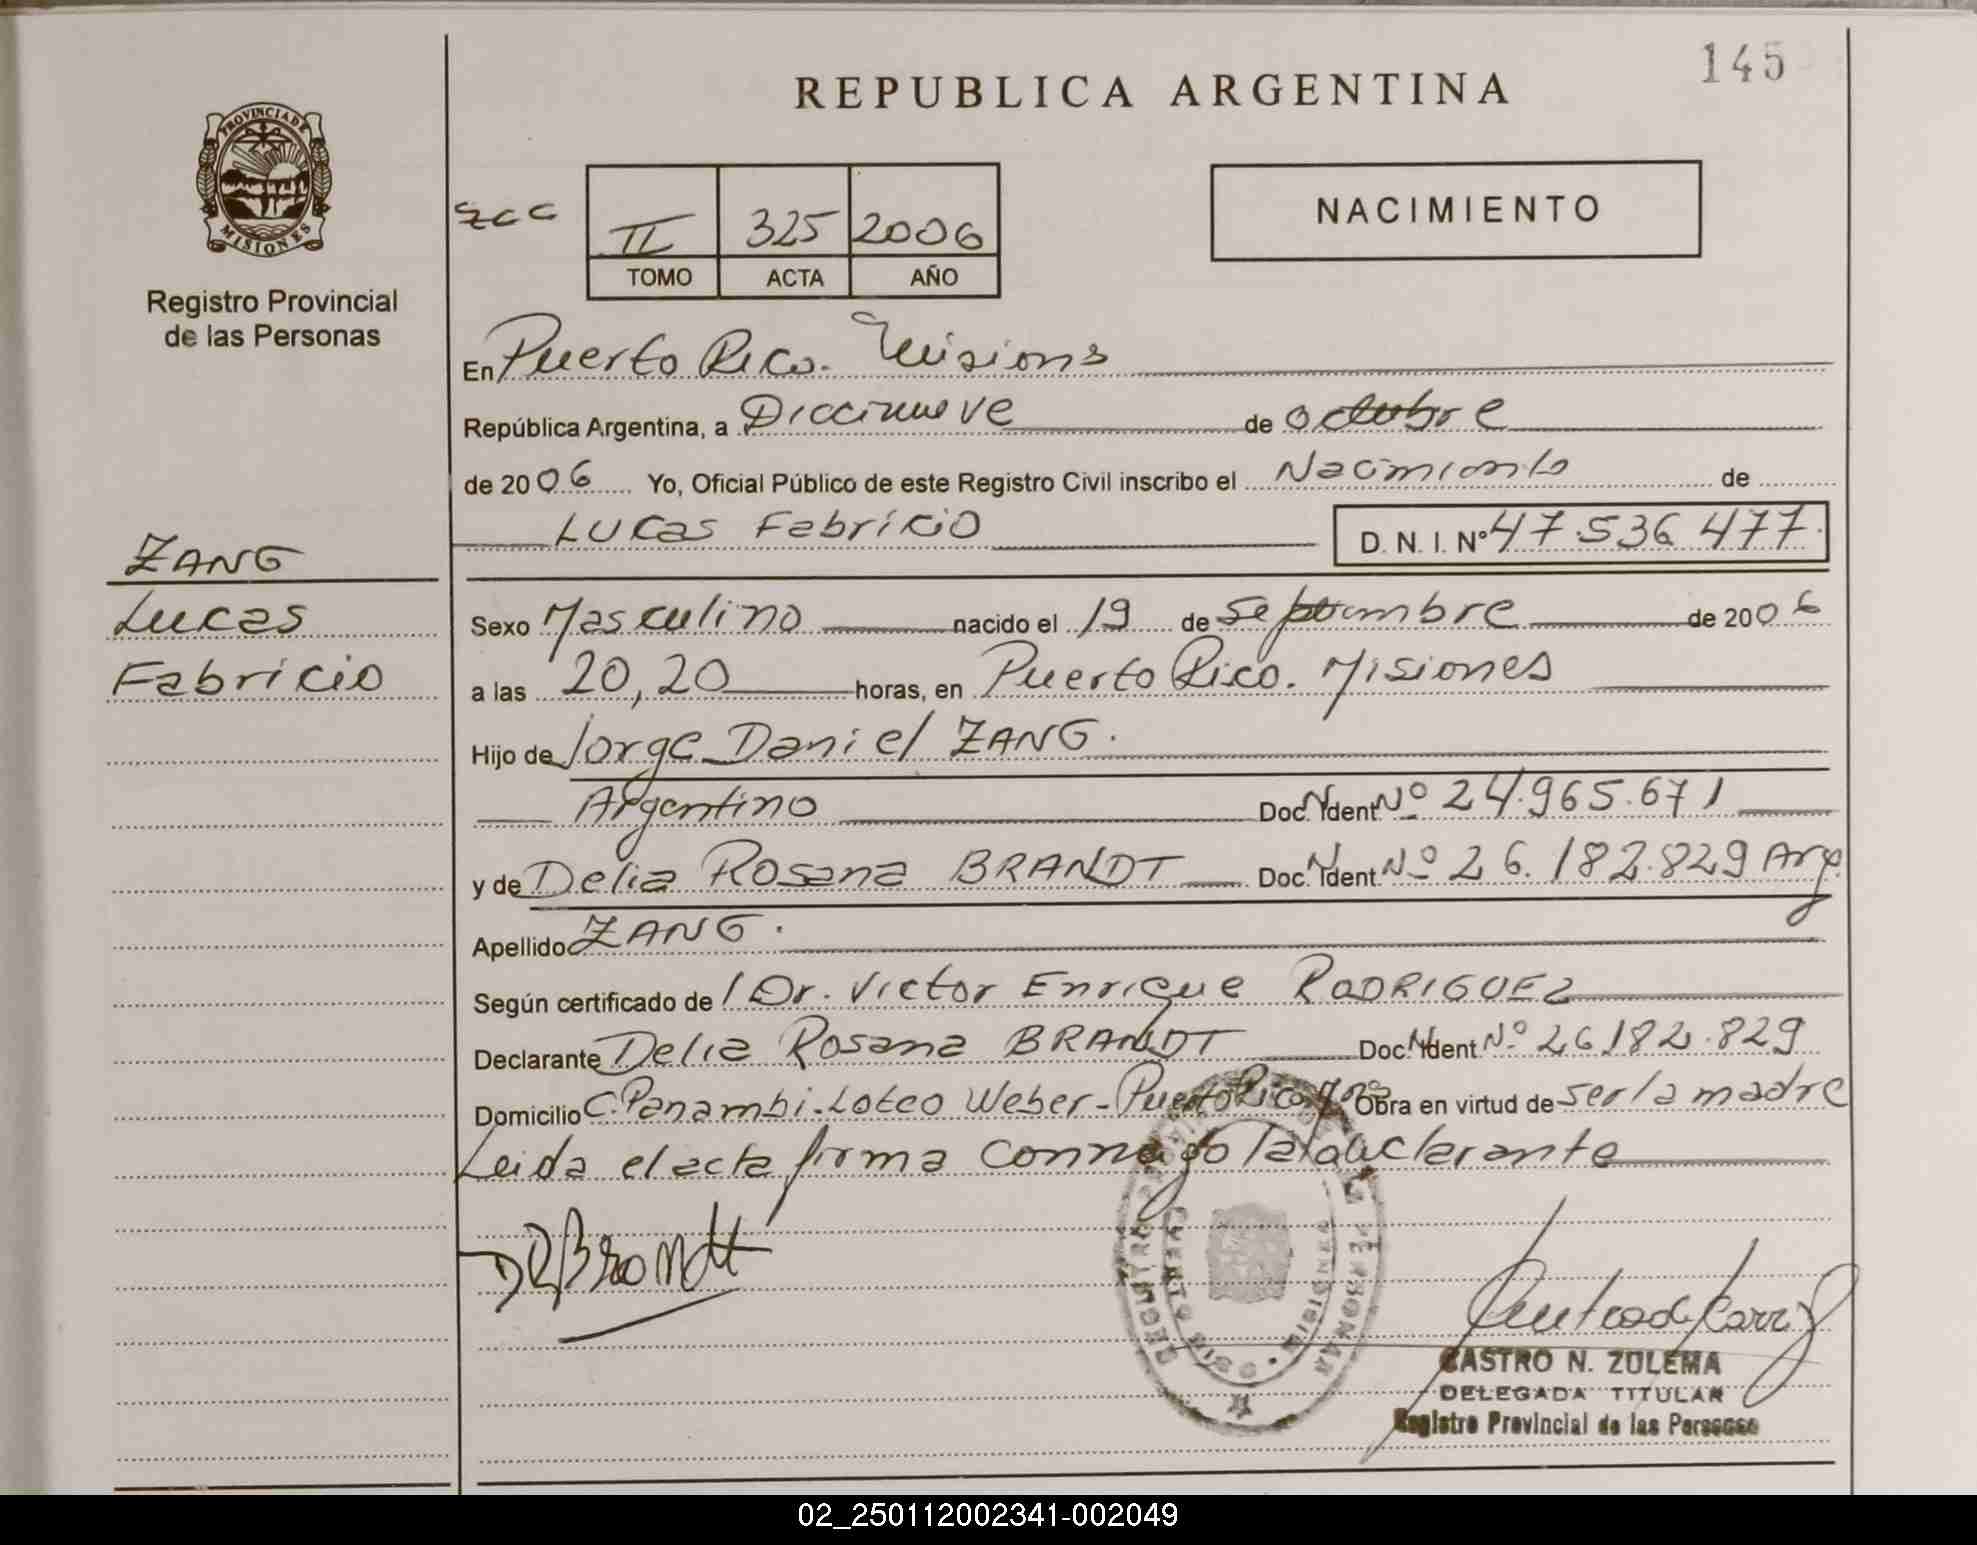 145
REPUBLICA ARGENTINA
PROVINCIA DE
MISIONES
Registro Provincial
de las Personas
NACIMIENTO
II 325 2006
TOMO ACTA AÑO
En Puerto Rico. Misions
República Argentina, a Diecinueve de octubre
de 2006 Yo, Oficial Público de este Registro Civil inscribo el Nacimiento de
Lucas Fabricio D. N. I. Nº 47.536.477.
ZANG
Lucas
Fabricio
Sexo Masculino nacido el 19 de Septiembre de 2006
a las 20,20 horas, en Puerto Rico. Misiones
Hijo de Jorge Daniel ZANG.
Argentino Doc. Ident. Nº 24.965.671
y de Delia Rosana BRANDT Doc. Ident. Nº 26.182.829 Arg.
Apellido ZANG.
Según certificado de / Dr. Victor Enrique RODRIGUEZ
Declarante Delia Rosana BRANDT Doc. Ident. Nº 26.182.829
Domicilio C. Panambi-Loteo Weber-Puerto Rico Obra en virtud de ser la madre
Leida el acta firma conmigo la declarante
DRBrandt
CASTRO N. ZULEMA
DELEGADA TITULAR
Registro Provincial de las Personas
02_250112002341-002049